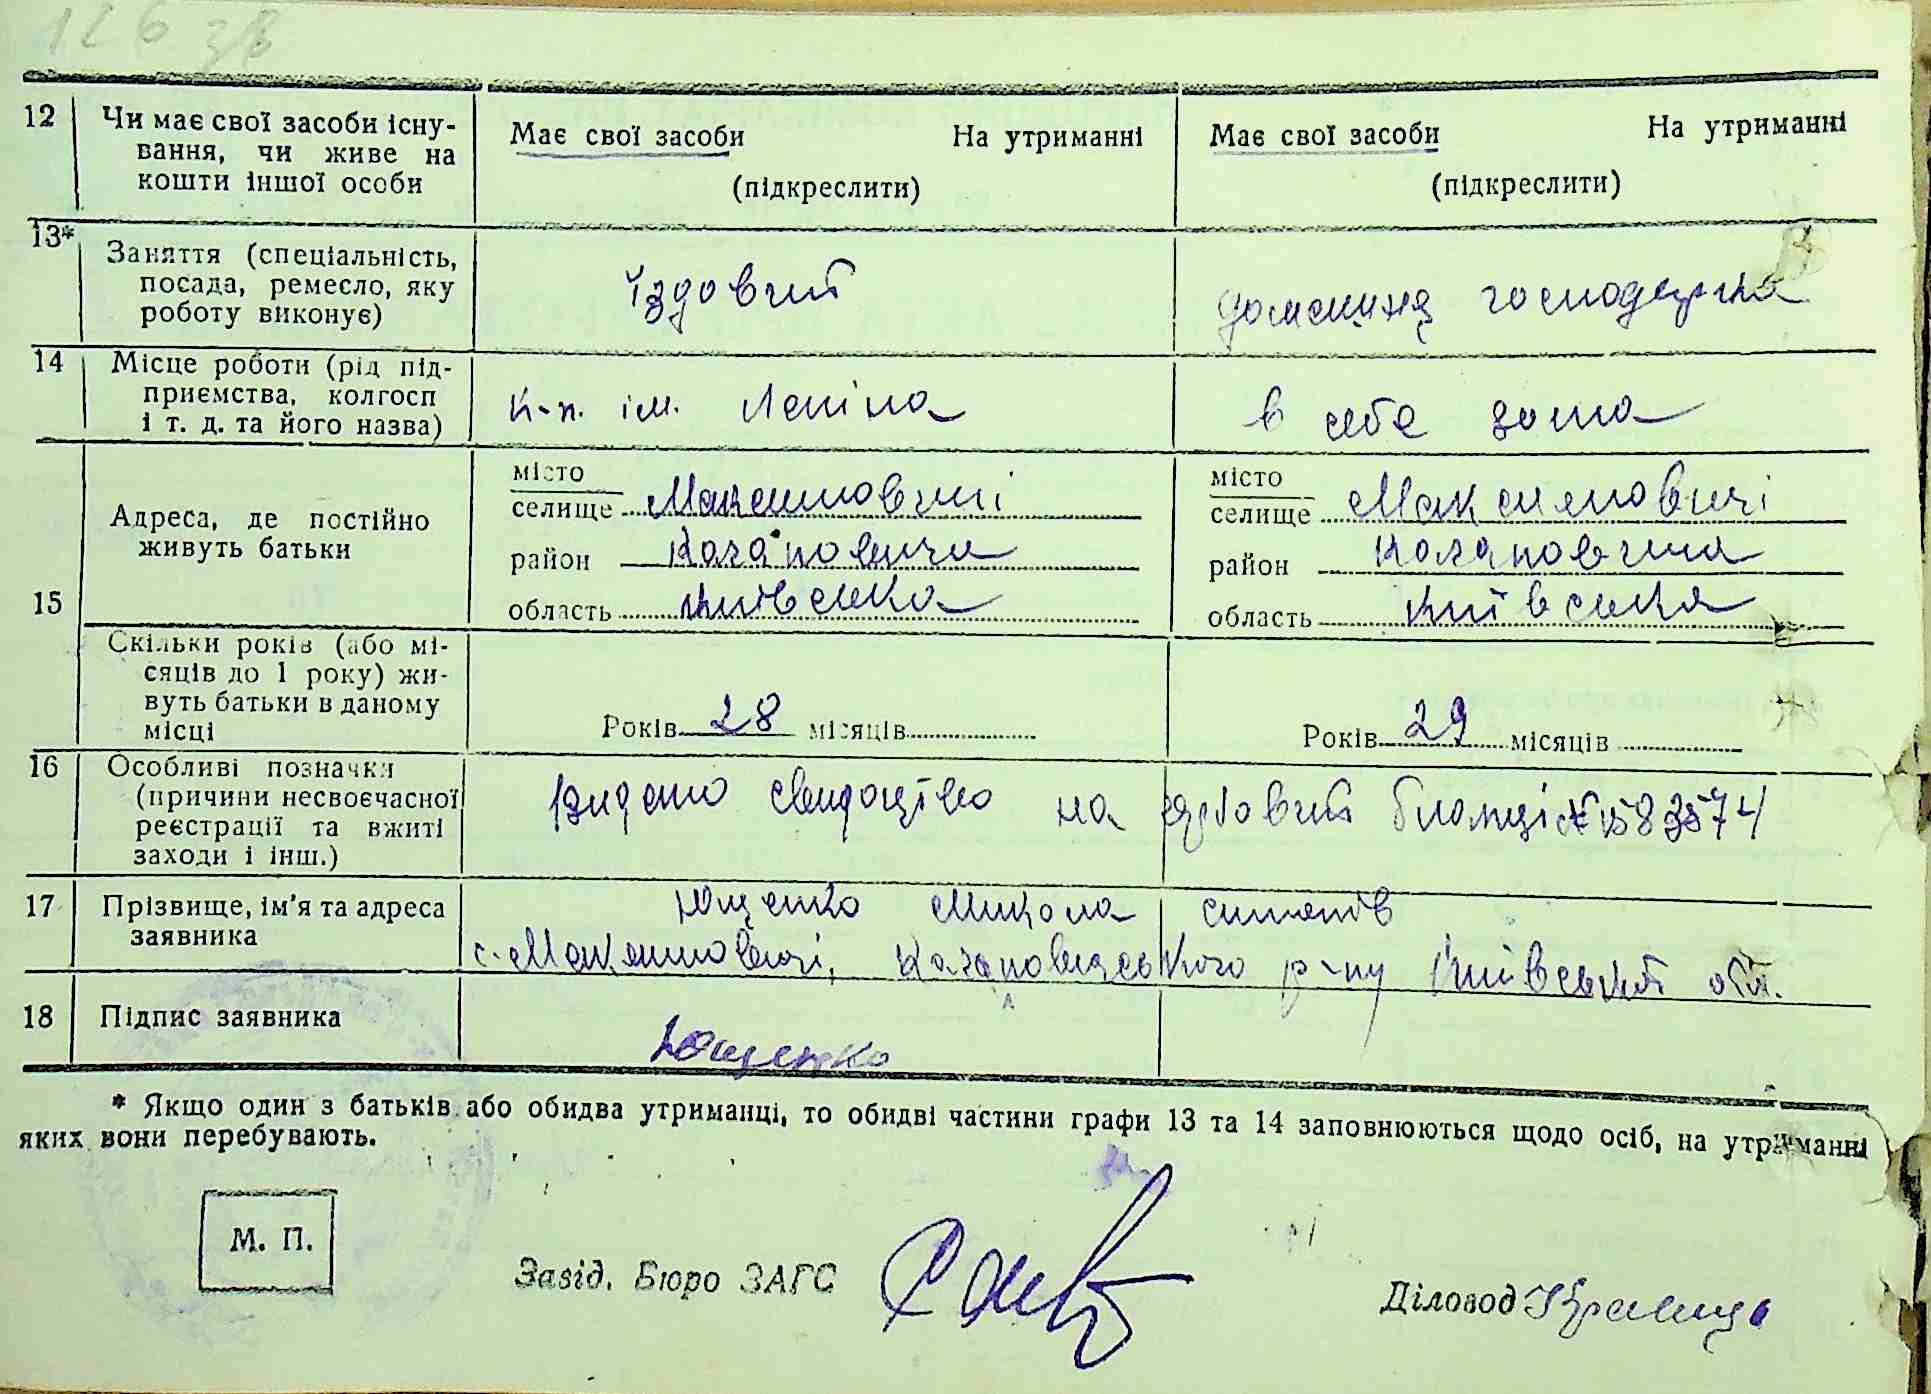 126 зв
12 Чи має свої засоби існу-
вання, чи живе на
кошти іншої особи
Має свої засоби На утриманні
(підкреслити)
Має свої засоби На утриманні
(підкреслити)
13* Заняття (спеціальність,
посада, ремесло, яку
роботу виконує)
їздовий
домашня господарка
14 Місце роботи (рід під-
приємства, колгосп
і т. д. та його назва)
к-п. ім. Леніна
в себе дома
15 Адреса, де постійно
живуть батьки
місто
селище Максимовичі
район Кагановича
область Київська
місто
селище Максимовичі
район Кагановича
область Київська
Скільки років (або мі-
сяців до 1 року) жи-
вуть батьки в даному
місці
Років 28 місяців
Років 29 місяців
16 Особливі позначки
(причини несвоєчасної
реєстрації та вжиті
заходи і інш.)
Видано свидоцтво на гербовий бланці №
17 Прізвище, ім'я та адреса
заявника
Ющенко Микола
с. Максимовичі, Кагановичського р-ну Київської обл.
18 Підпис заявника
Ющенко
* Якщо один з батьків або обидва утриманці, то обидві частини графи 13 та 14 заповнюються щодо осіб, на утриманні
яких вони перебувають.
М. П.
Завід. Бюро ЗАГС
Діловод